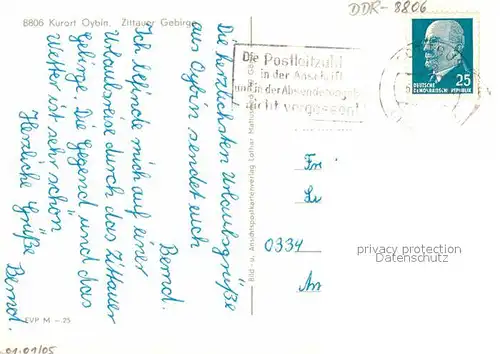 DDR-8806
8806 Kurort Oybin, Zittauer Gebirge
Die herzlichsten Urlaubsgrüße
aus Oybin sendet euch
Bernd.
Ich befinde mich auf einer
Urlaubsreise durch das Zittauer
Gebirge. Die Gegend und das
Wetter ist sehr schön
Herzliche Grüße
Bernd.
Die Postleitzahl
in der Anschrift
und in der Absenderangabe
nicht vergessen!
25
DEUTSCHE
DEMOKRATISCHE REPUBLIK
Bild- u. Ansichtskartenverlag Lothar
Fr
Lu
0334
An
privacy protection
Datenschutz
EVP M -.25
01-01/05